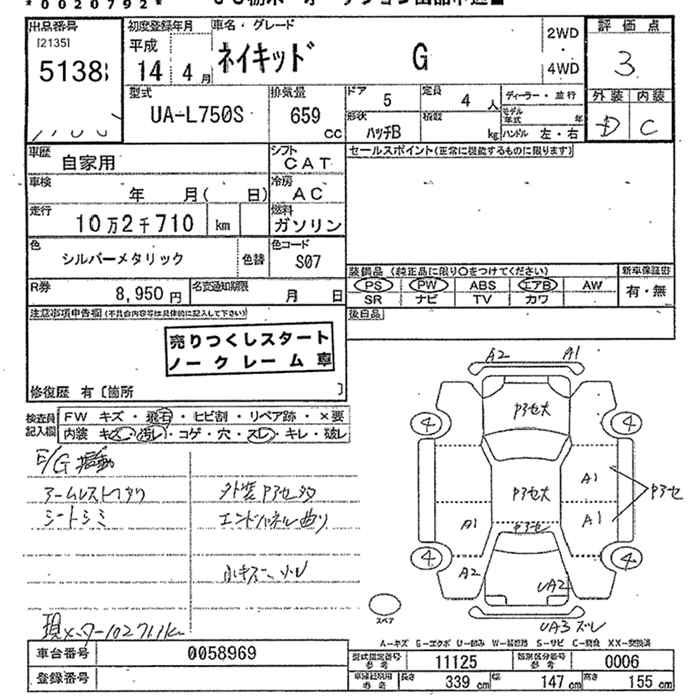 *0020792*
出品番号
[2135]
初度登録年月
車名・グレード
評価点
平成
ネイキッド G
2WD
・
4WD
3
5138
14 4月
型式
排気量
ドア 5
定員 4人
ディーラー・並行
外装 内装
UA-L750S
659 cc
形状 ハッチB
積載 kg
モデル年式 年
ハンドル 左・右
D C
車歴
自家用
シフト
CAT
セールスポイント(正常に機能するものに限ります)
車検
年 月( 日)
冷房
AC
走行
10万2千710 km
燃料
ガソリン
色
シルバーメタリック
色替
色コード
S07
装備品(純正品に限り○をつけてください)
新車保証書
R券
8,950円
名変通知期限
月 日
PS PW ABS エアB AW
有・無
SR ナビ TV カワ
注意事項申告欄(不具合内容等は具体的に記入して下さい)
後日品
売りつくしスタート
ノークレーム車
修復歴 有〔箇所 〕
検査員
記入欄
FW キズ・飛石・ヒビ割・リペア跡・×要
内装 キズ・汚レ・コゲ・穴・スレ・キレ・破レ
A2 A1
4 4
Pアセ大
E/G
アームレスト
外装Pアセ多
シートシミ
エンドパネル曲り
Pアセ大
A1
A1
Pアセ
A1
Pアセ
4 4
A2
UA2
UA3 ズレ
スペア
現メーター10271km
A-キズ G-エクボ U-凹み W-補修跡 S-サビ C-腐食 XX-交換済
車台番号
0058969
型式指定番号
参考
11125
類別区分番号
参考
0006
登録番号
参考
長さ 339 cm
幅 147 cm
高さ 155 cm